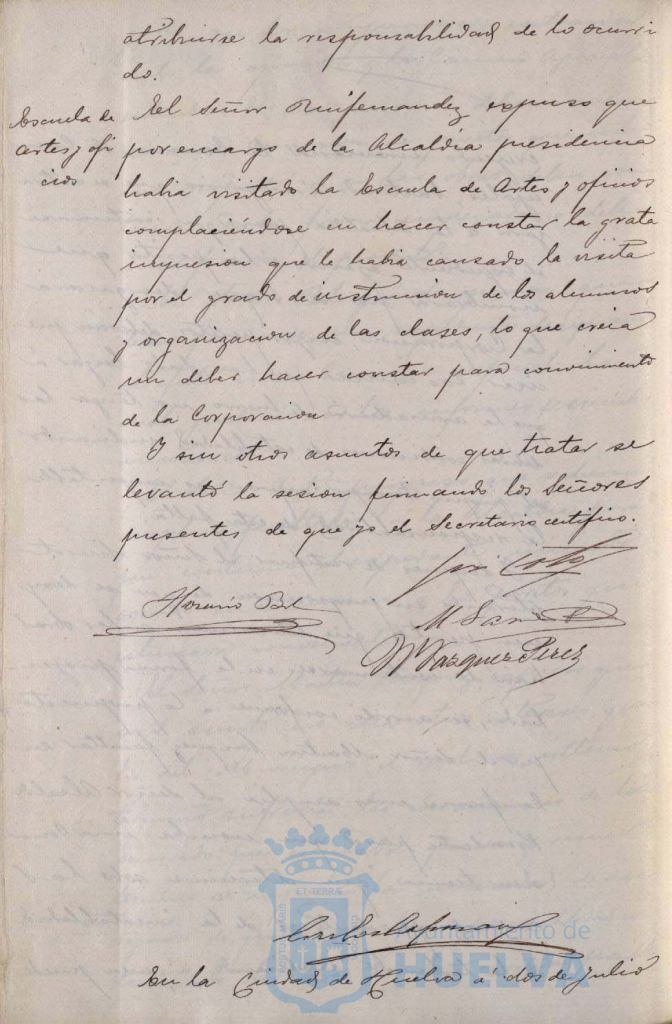 atribuirse la responsabilidad de lo ocurri
do.
Escuela de
artes y ofi
cios
El Señor Ruifernandez expuso que
por encargo de la Alcaldía presidencia
habia visitado la Escuela de Artes y oficios
complaciéndose en hacer constar la grata
impresion que le habia causado la visita
por el grado de instruccion de los alumnos
y organizacion de las clases, lo que creia
un deber hacer constar para conocimiento
de la Corporacion
Y sin otros asuntos de que tratar se
levantó la sesion firmando los Señores
presentes de que yo el Secretario certifico.
Horacio Bel
M Vazquez Perez
ET TERRÆ
Ayuntamiento de
HUELVA
En la Ciudad de Huelva á dos de julio